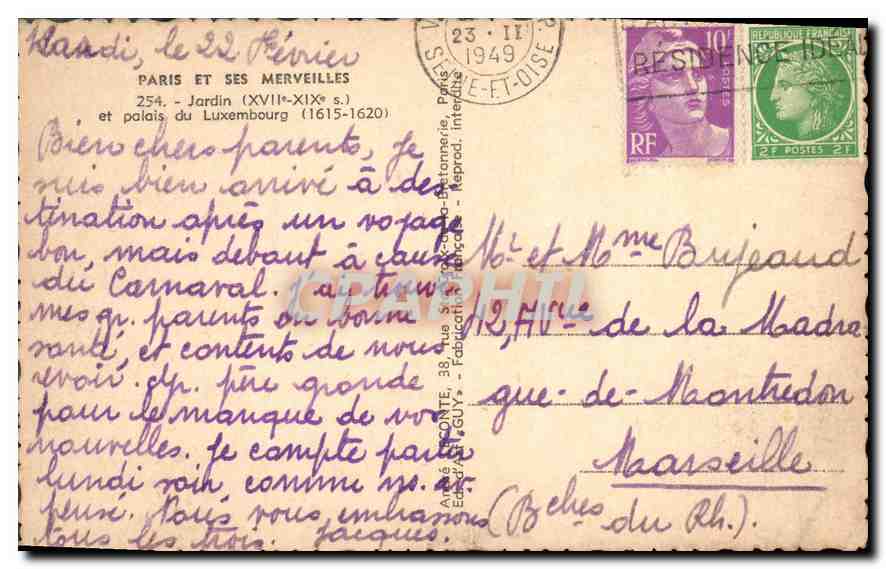 Mardi, le 22 Février
PARIS ET SES MERVEILLES
254. - Jardin (XVIIe-XIXe s.)
et palais du Luxembourg (1615-1620)
Bien chers parents, je
suis bien arrivé à des-
tination après un voyage
bon, mais debout à cause
du Carnaval. J'ai trouvé
mes gr. parents en bonne
santé, et contents de nous
revoir. gr. père gronde
pour le manque de vos
nouvelles. Je compte partir
lundi soir comme
pensé. vous embrassons
tous les trois. Jacques.
André LECONTE, 38, rue Ste-Croix-de-la-Bretonnerie, Paris
Edit. d'Art «GUY» - Fabrication Française - Reprod. interdite
23 · II
1949
SEINE-ET-OISE
RÉSIDENCE IDÉAL
10F
POSTES
RF
REPUBLIQUE FRANÇAISE
2F POSTES 2F
Mr et Mme Bujeaud
12, AVnue de la Madra
gue-de-Montredon
Marseille
(Bches du Rh.).
CPAPHIL